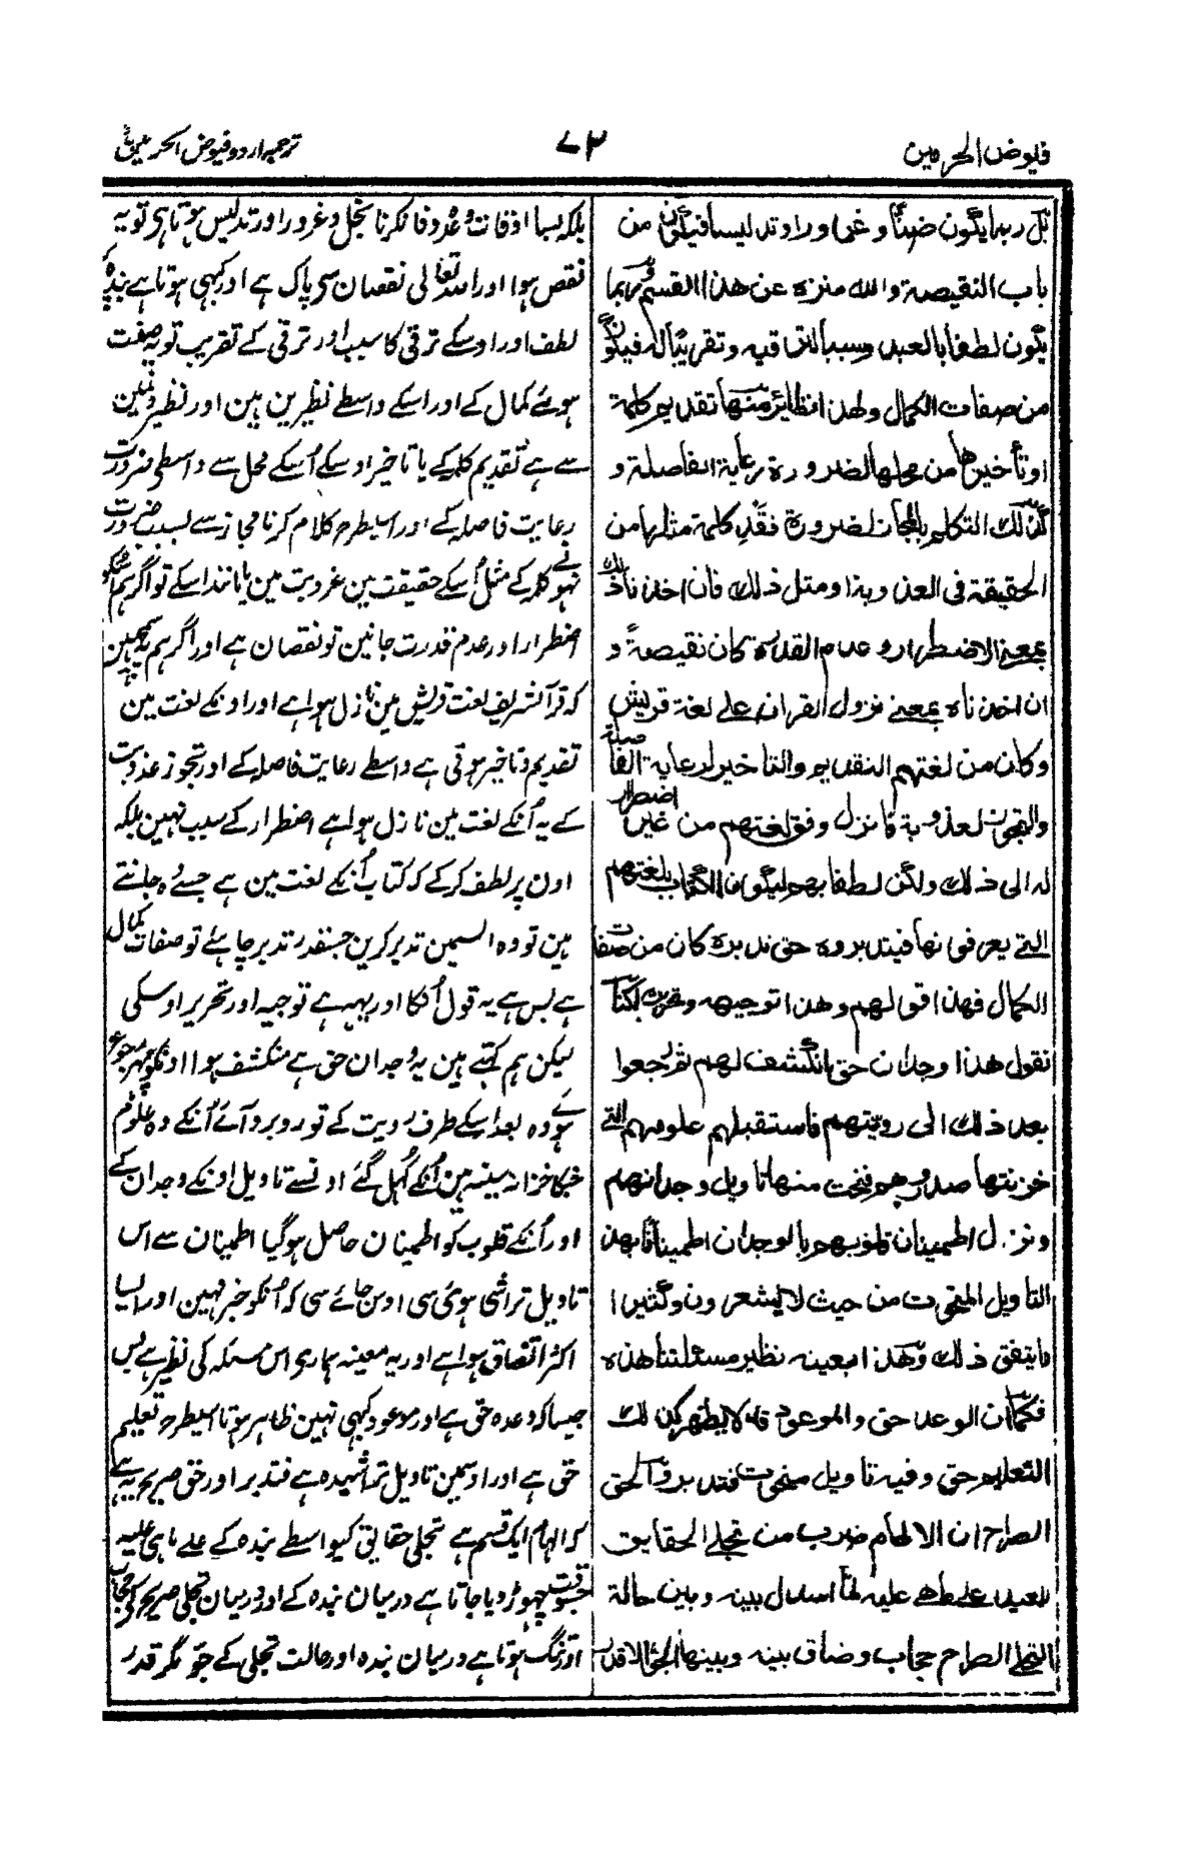 فيوض الحرمين
۷۳
ترجمہ اردو فیوض الحرمین
بل ربما يكون ضنًّا وغرورا وتدليسا فيكون من
باب النقيصة والله منزه عن هذا القسم وربما
يكون لطفا بالعبد وسببا لترقيه وتقريبًا له فيكون
من صفات الكمال ولهذا نظائر منها تقديم كلمة
او تأخيرها من محلها لضرورة رعاية الفاصلة و
كذلك التكلم بالمجاز لضرورة فقد كلمة مثلها من
الحقيقة فى العذوبة او مثل ذلك فان اخذنا ذلك
بمعنى الاضطرار وعدم القدرة كان نقيصةً و
ان اخذناه بمعنى نزول القران على لغة قريش
وكان من لغتهم التقديم والتاخير لرعاية الفاصلة
والتجوز لعذوبة فانزل وفق لغتهم من غير اضطرار
له الى ذلك ولكن لطفا بهم ليكون الكتاب بلغتهم
التى يعرفونها فيتدبروه حق تدبره كان من صفات
الكمال فهذا قولهم وهذا توجيهه وتحريره لكنا
نقول هذا وجدان حق انكشف لهم ثم رجعوا
بعد ذلك الى رويتهم فاستقبلهم علومهم التى
خزنتها صدورهم فنحت منها تاويل وجدانهم
ونزل اطمينان قلوبهم بالوجدان اطمينانا بهذا
التاويل المنحوت من حيث لا يشعرون وكثيرا
ما يتفق ذلك وهذا بعينه نظير مسئلتنا هذه
فكما ان الوعد حق والموعود قد لا يظهر كذلك
التعليم حق وفيه تاويل منحوت فتدبر والحق
الصراح ان الالهام ضرب من تجلى الحقايق
للعبد على ما هى عليه لما اسدل بينه وبين حالة
التجلى الصراح حجاب وضاق بينه وبينها الجو الا قدر
بلکہ بسا اوقات وعدہ وفا نکرنا بخل و غرور اور تدلیس ہوتا ہی تو یہ
نقص ہوا اور اللہ تعالی نقصان سی پاک ہے اور کبھی ہوتا ہے بندہ پر
لطف اور اوسکے ترقی کا سبب اور ترقی کے تقریب تو یہ صفت
ہوئے کمال کے اور اسکے واسطے نظیرین ہین اور نظیرونمین
سے ہے تقدیم کلمہ کے یا تاخیر اوسکے اُسکے محل سے واسطی ضرورت
رعایت فاصلہ کے اور اسیطرح کلام کرنا مجاز سے بسبب ضرورت
نہونے کلمہ کے مثل اُسکے حقیقت مین عذوبت مین یا مانند اسکے تو اگر ہم اسکو
اضطرار اور عدم قدرت جانین تو نقصان ہے اور اگر ہم سمجہین
کہ قرآنشریف لغت قریش مین نازل ہوا ہے اور اونکے لغت مین
تقدیم و تاخیر ہوتی ہے واسطے رعایت فاصلہ کے اور تجوز عذوبت
کے یہ اُنکے لغت مین نازل ہوا ہے اضطرار کے سبب نہین بلکہ
اون پر لطف کر کے کہ کتاب اُنکے لغت مین ہے جسے وہ جانتے
ہین تو وہ اسمین تدبر کرین جسقدر تدبر چاہئے تو صفات کمال
ہے بس ہے یہ قول اُنکا اور یہہ ہے توجیہ اور تحریر اوسکی
لیکن ہم کہتے ہین یہ وجدان حق ہے منکشف ہوا اونکو پہر رجوع
ہوئے وہ بعد اسکے طرف رویت کے تو روبرو آئے اُنکے وہ علوم
جنکا خزانہ سینہ ہین اُنکے کُہل گئے اونسے تاویل اونکے وجدان کے
اور اُنکے قلوب کو اطمینان حاصل ہو گیا اطمینان سے اس
تاویل تراشی ہوئی سی اوس جائے سی کہ اُنکو خبر نہین اور ایسا
اکثر اتفاق ہوا ہے اور یہ معینہ ہماری اس مسئلہ کی نظیر ہے پس
جیسا کہ وعدہ حق ہے اور موعود کبھی نہین ظاہر ہوتا اسیطرح تعلیم
حق ہے اور اوسمین تاویل تراشیدہ ہے فتدبر اور حق صریح یہ ہے
کہ الہام ایک قسم ہے تجلی حقایق کیواسطے بندہ کے علے ماہی علیہ
جسوقت چہوڑ دیا جاتا ہے درمیان بندہ کے اور درمیان تجلی صریح کے حجاب
اور تنگ ہوتا ہے درمیان بندہ اور حالت تجلی کے جو مگر قدر